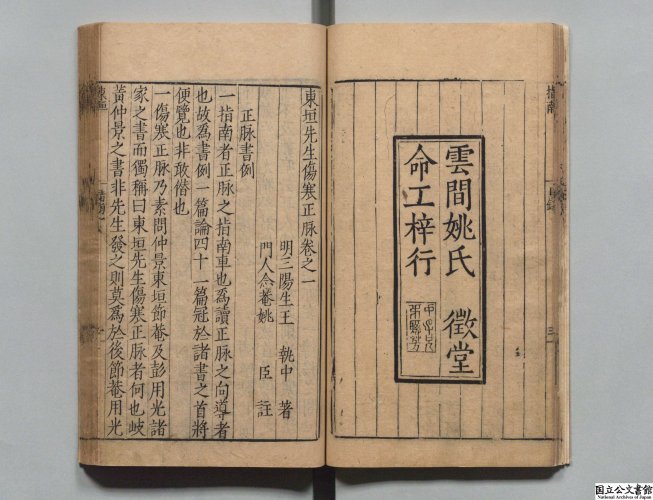 指南
三
雲間姚氏 徵堂
命工梓行
東垣先生傷寒正脉卷之一
明三陽生王 執中 著
門人念菴姚 臣 註
正脉書例
一指南者正脉之指南車也為讀正脉之向導者
也故為書例一篇論四十一篇冠於諸書之首將
便覽也非敢僭也
一傷寒正脉乃素問仲景東垣節菴及彭用光諸
家之書而獨稱曰東垣先生傷寒正脉者何也岐
黃仲景之書非先生發之則莫爲於後節菴用光
東垣
国立公文書館
National Archives of Japan